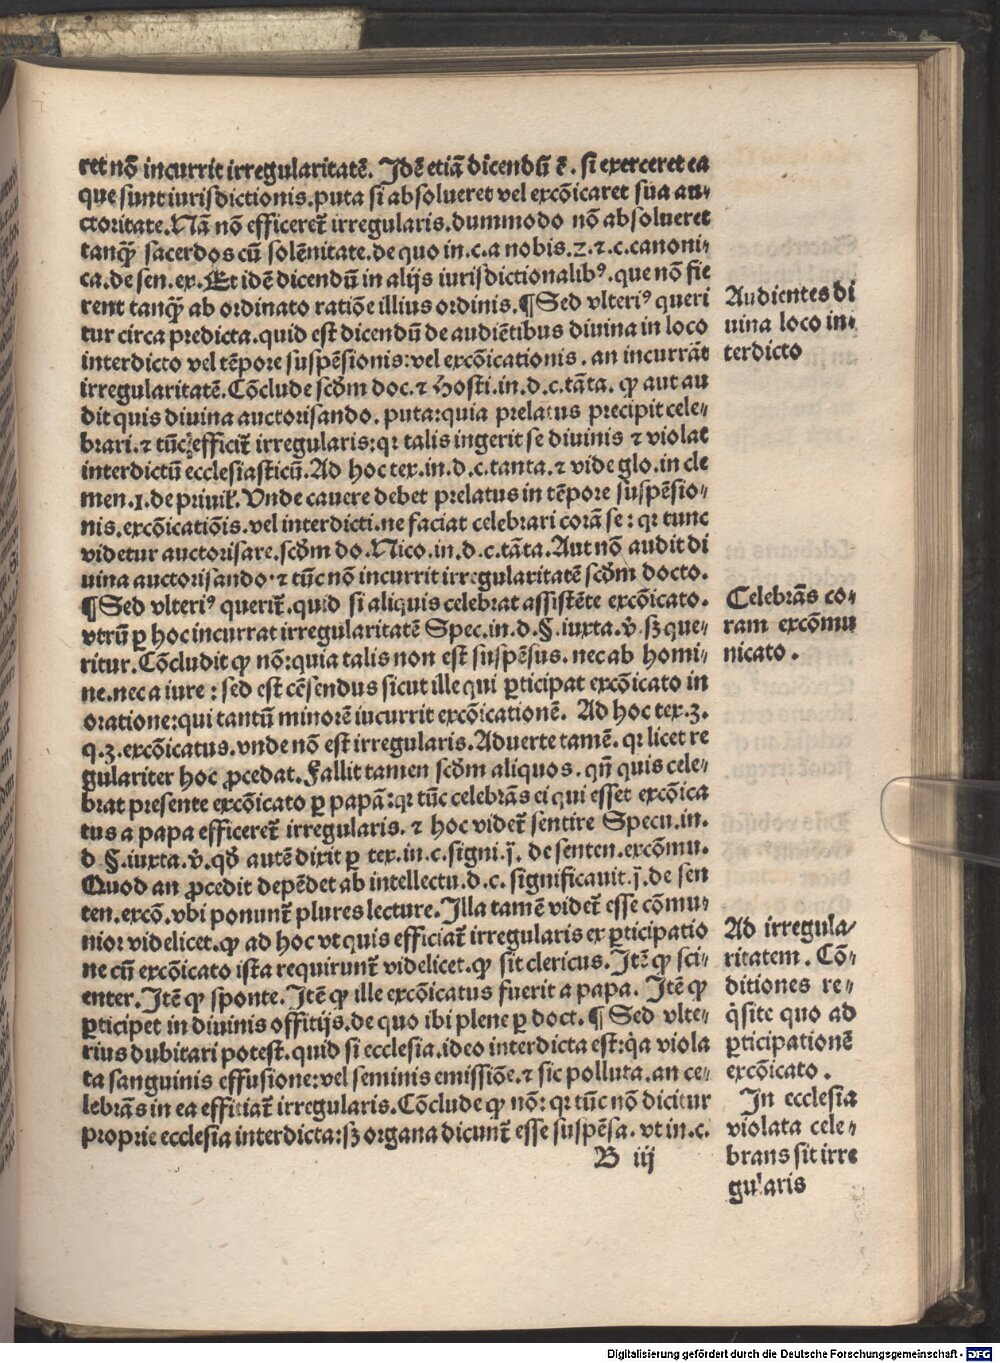 ret nõ incurrit irregularitatẽ. Jdẽ etiã dicendũ ẽ. si exerceret ea
que sunt iurisdictionis. puta si absolueret vel excõicaret sua au⸗
ctoritate. Nã nõ efficeret̃ irregularis. dummodo nõ absolueret
tanqꝫ sacerdos cũ solẽnitate. de quo in. c. a nobis. 2. ⁊. c. canoni⸗
ca. de sen. ex. Et idẽ dicendũ in alijs iurisdictionalibꝰ. que nõ fie
rent tanqꝫ ab ordinato ratiõe illius ordinis. ¶Sed vlteriꝰ queri
tur circa predicta. quid est dicendũ de audiẽtibus diuina in loco
interdicto vel tẽpore suspẽsionis: vel excõicationis. an incurrãt
irregularitatẽ. Cõclude scđm doc. ⁊ Hosti. in. d. c. tãta. ꝙ aut au
dit quis diuina auctorisando. puta: quia prelatus precipit cele⸗
brari. ⁊ tũc efficit̃ irregularis: qꝛ talis ingerit se diuinis ⁊ violat
interdictũ ecclesiasticũ. Ad hoc tex. in. d. c. tanta. ⁊ vide glo. in cle
men. 1. de priuil̃. Vnde cauere debet prelatus in tẽpore suspẽsio⸗
nis. excõicatiõis. vel interdicti. ne faciat celebrari corã se: qꝛ tunc
videtur auctorisare. scđm do. Nico. in. d. c. tãta. Aut nõ audit di
uina auctorisando. ⁊ tũc nõ incurrit irregularitatẽ scđm docto.
¶Sed vlteriꝰ querit̃. quid si aliquis celebrat assistẽte excõicato.
vtrũ ꝑ hoc incurrat irregularitatẽ Spec. in. d. §. iuxta. v̓. sꝫ que⸗
ritur. Cõcludit ꝙ nõ: quia talis non est suspẽsus. nec ab homi⸗
ne. nec a iure: sed est cẽsendus sicut ille qui ꝑticipat excõicato in
oratione: qui tantũ minorẽ iucurrit excõicationẽ. Ad hoc tex. 3.
q. 3. excõicatus. vnde nõ est irregularis. Aduerte tamẽ. qꝛ licet re
gulariter hoc ꝓcedat. Fallit tamen scđm aliquos. qñ quis cele⸗
brat presente excõicato ꝑ papã: qꝛ tũc celebrãs ei qui esset excõica
tus a papa efficeret̃ irregularis. ⁊ hoc videt̃ sentire Specu. in.
d §. iuxta. v̓. qđ autẽ dixit ꝑ tex. in. c. signi. j̃. de senten. excõmu.
Quod an ꝓcedit depẽdet ab intellectu. d. c. significauit. j̃. de sen
ten. excõ. vbi ponunt̃ plures lecture. Illa tamẽ videt̃ esse cõmu⸗
nior videlicet. ꝙ ad hoc vt quis efficiat̃ irregularis ex ꝑticipatio
ne cũ excõicato ista requirunt̃ videlicet. ꝙ sit clericus. Itẽ ꝙ sci⸗
enter. Itẽ ꝙ sponte. Itẽ ꝙ ille excõicatus fuerit a papa. Itẽ ꝙ
ꝑticipet in diuinis offitijs. de quo ibi plene ꝑ doct. ¶ Sed vlte⸗
rius dubitari potest. quid si ecclesia. ideo interdicta est: q̃a viola
ta sanguinis effusione: vel seminis emissiõe. ⁊ sic polluta. an ce⸗
lebrãs in ea efficiat̃ irregularis. Cõclude ꝙ nõ: qꝛ tũc nõ dicitur
proprie ecclesia interdicta: sꝫ organa dicunt̃ esse suspẽsa. vt in. c.
B iij
Audientes di
uina loco in⸗
terdicto
Celebrãs co⸗
ram excõmu
nicato.
Ad irregula⸗
ritatem. Cõ⸗
ditiones re⸗
q̃site quo ad
ꝑticipationẽ
excõicato.
In ecclesia
violata cele⸗
brans sit irre
gularis
Digitalisierung gefördert durch die Deutsche Forschungsgemeinschaft - DFG